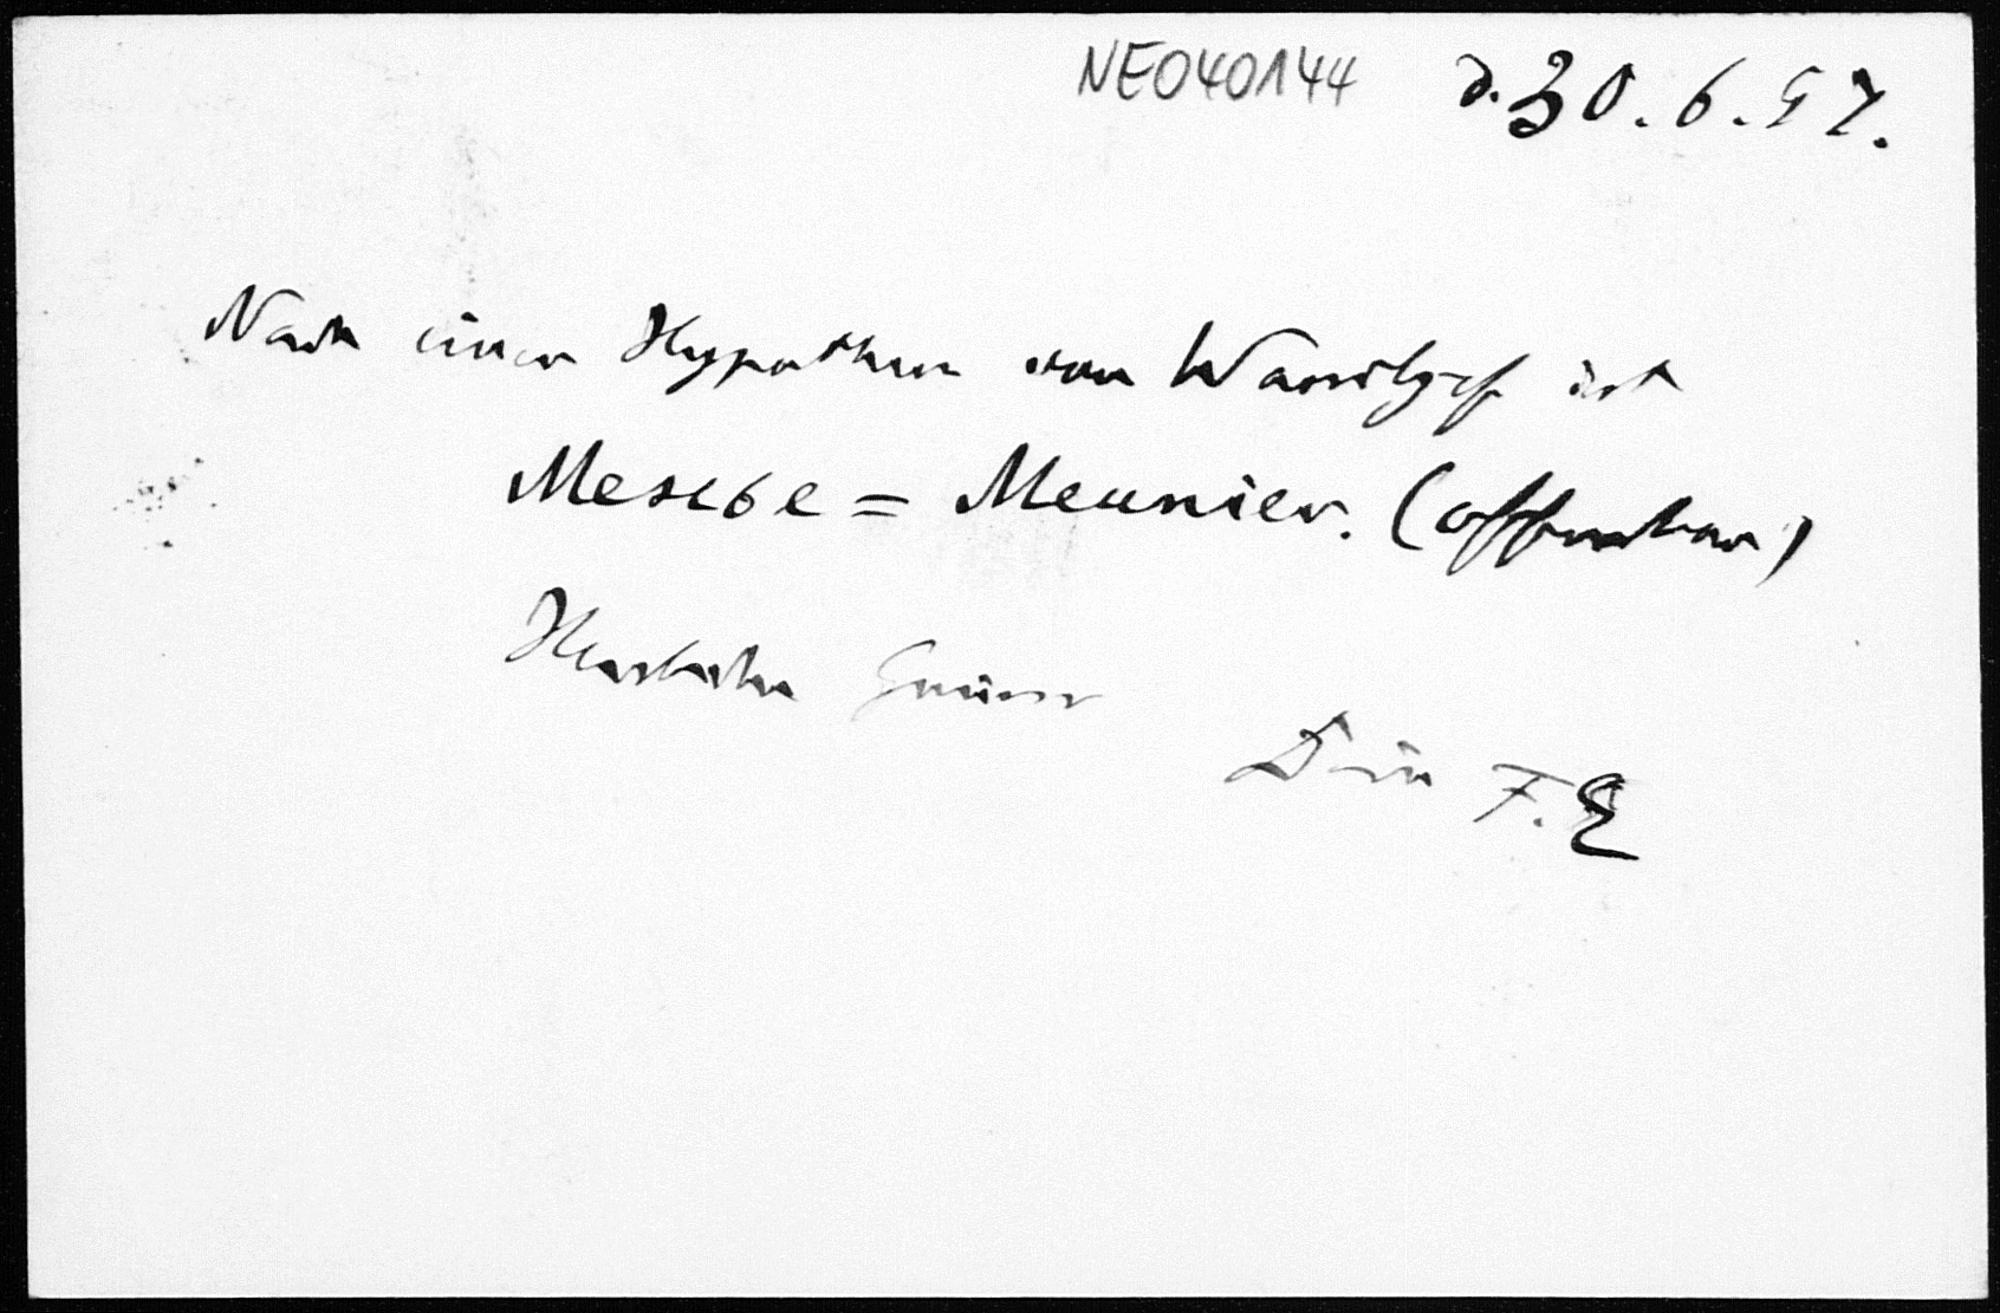 NE040144 d. 30.6.57.
Nach einer Hypothese von Wassilzef ist
= Meunier. (offenbar)
Herzliche Grüsse
Dein F.E